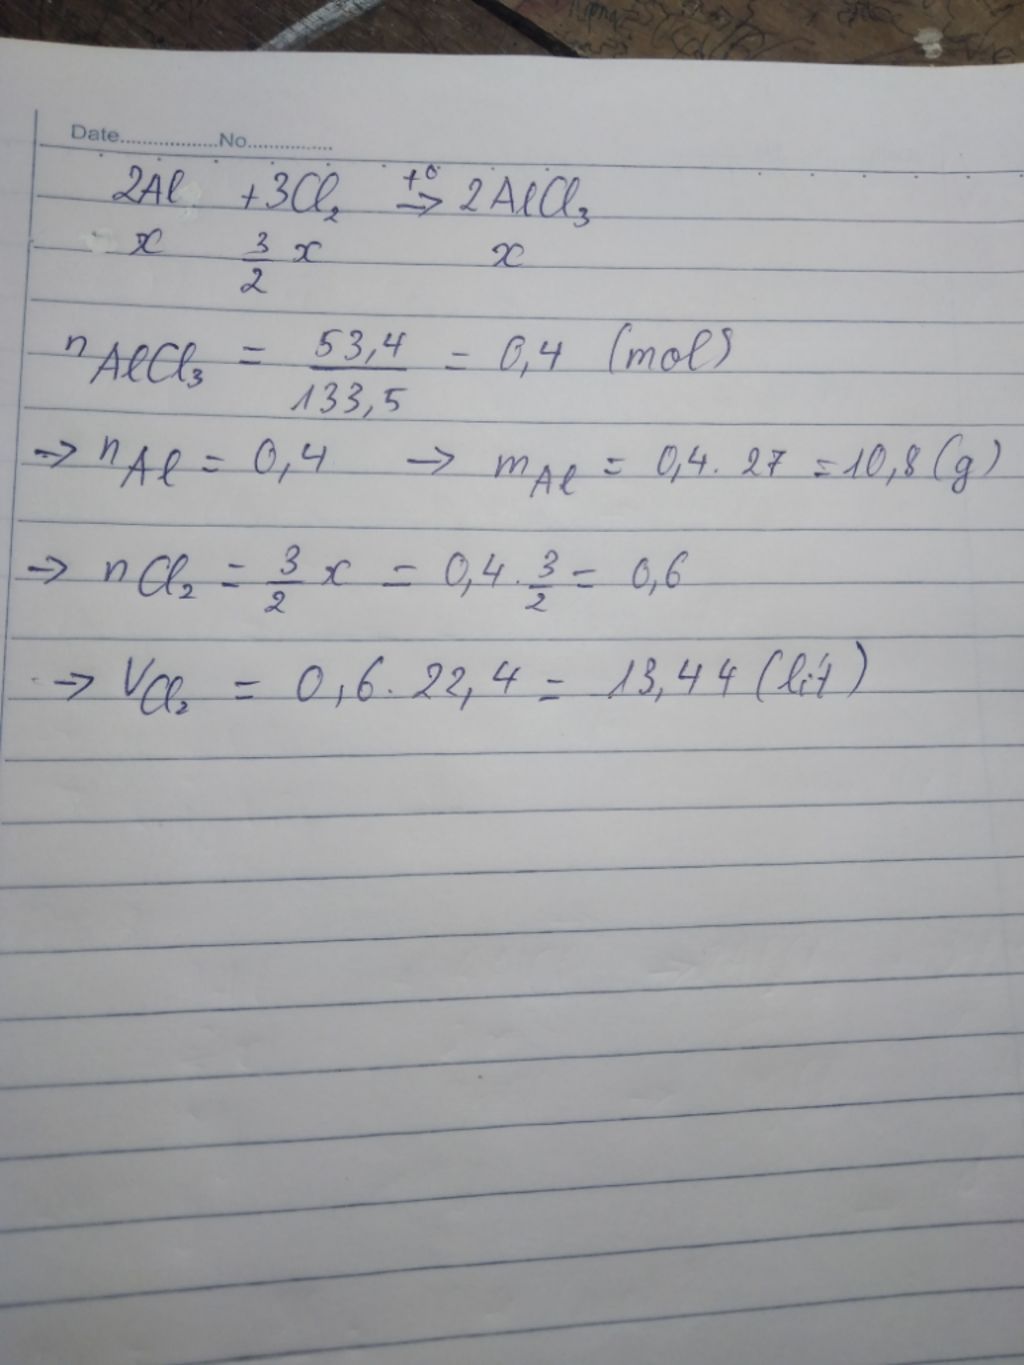 Date.................No..............
2Al + 3Cl₂ →(t⁰) 2AlCl₃
x 3/2 x x
nAlCl₃ = 53,4/133,5 = 0,4 (mol)
→ nAl = 0,4 → mAl = 0,4. 27 = 10,8 (g)
→ nCl₂ = 3/2 x = 0,4. 3/2 = 0,6
→ VCl₂ = 0,6. 22,4 = 13,44 (lít)